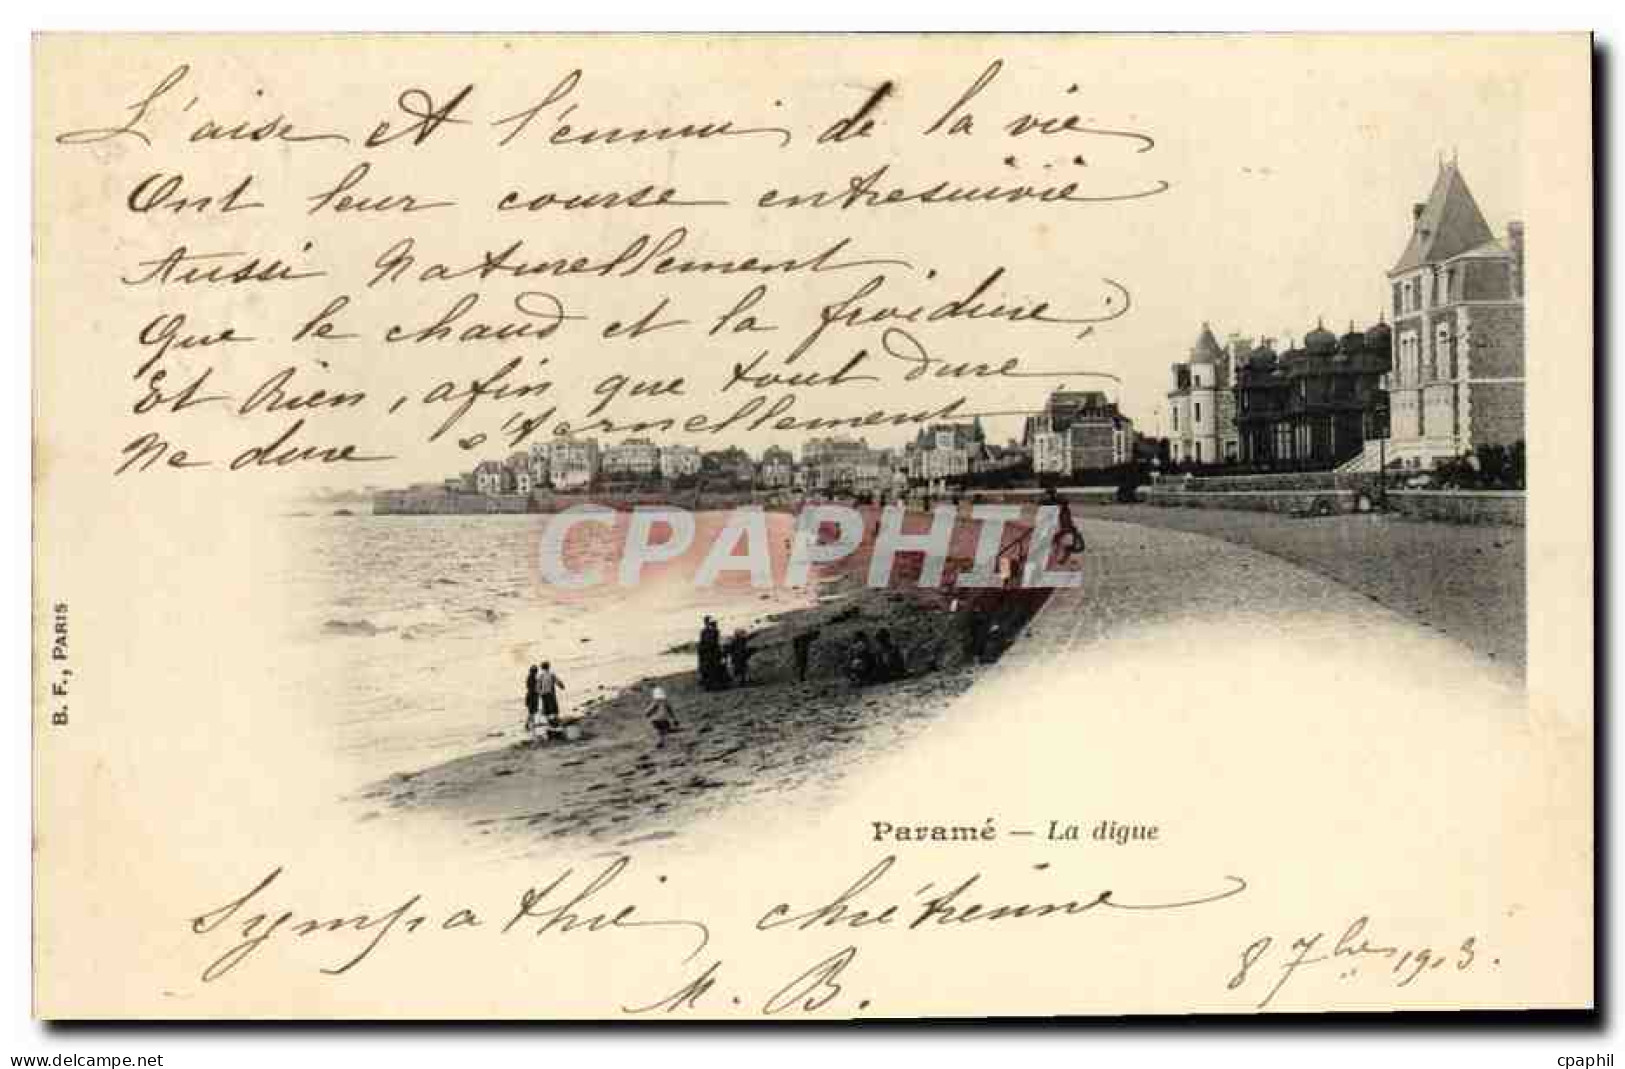 L'aise et l'ennui, de la vie
Ont leur course entresuivie
Aussi naturellement,
Que le chaud et la froidure;
Et Rien, afin que tout dure
Ne dure éternellement
CPAPHIL
B. F., PARIS
Paramé — La digue
Sympathie, chrétienne
M. B.
8 7bre 1903.
www.delcampe.net
cpaphil